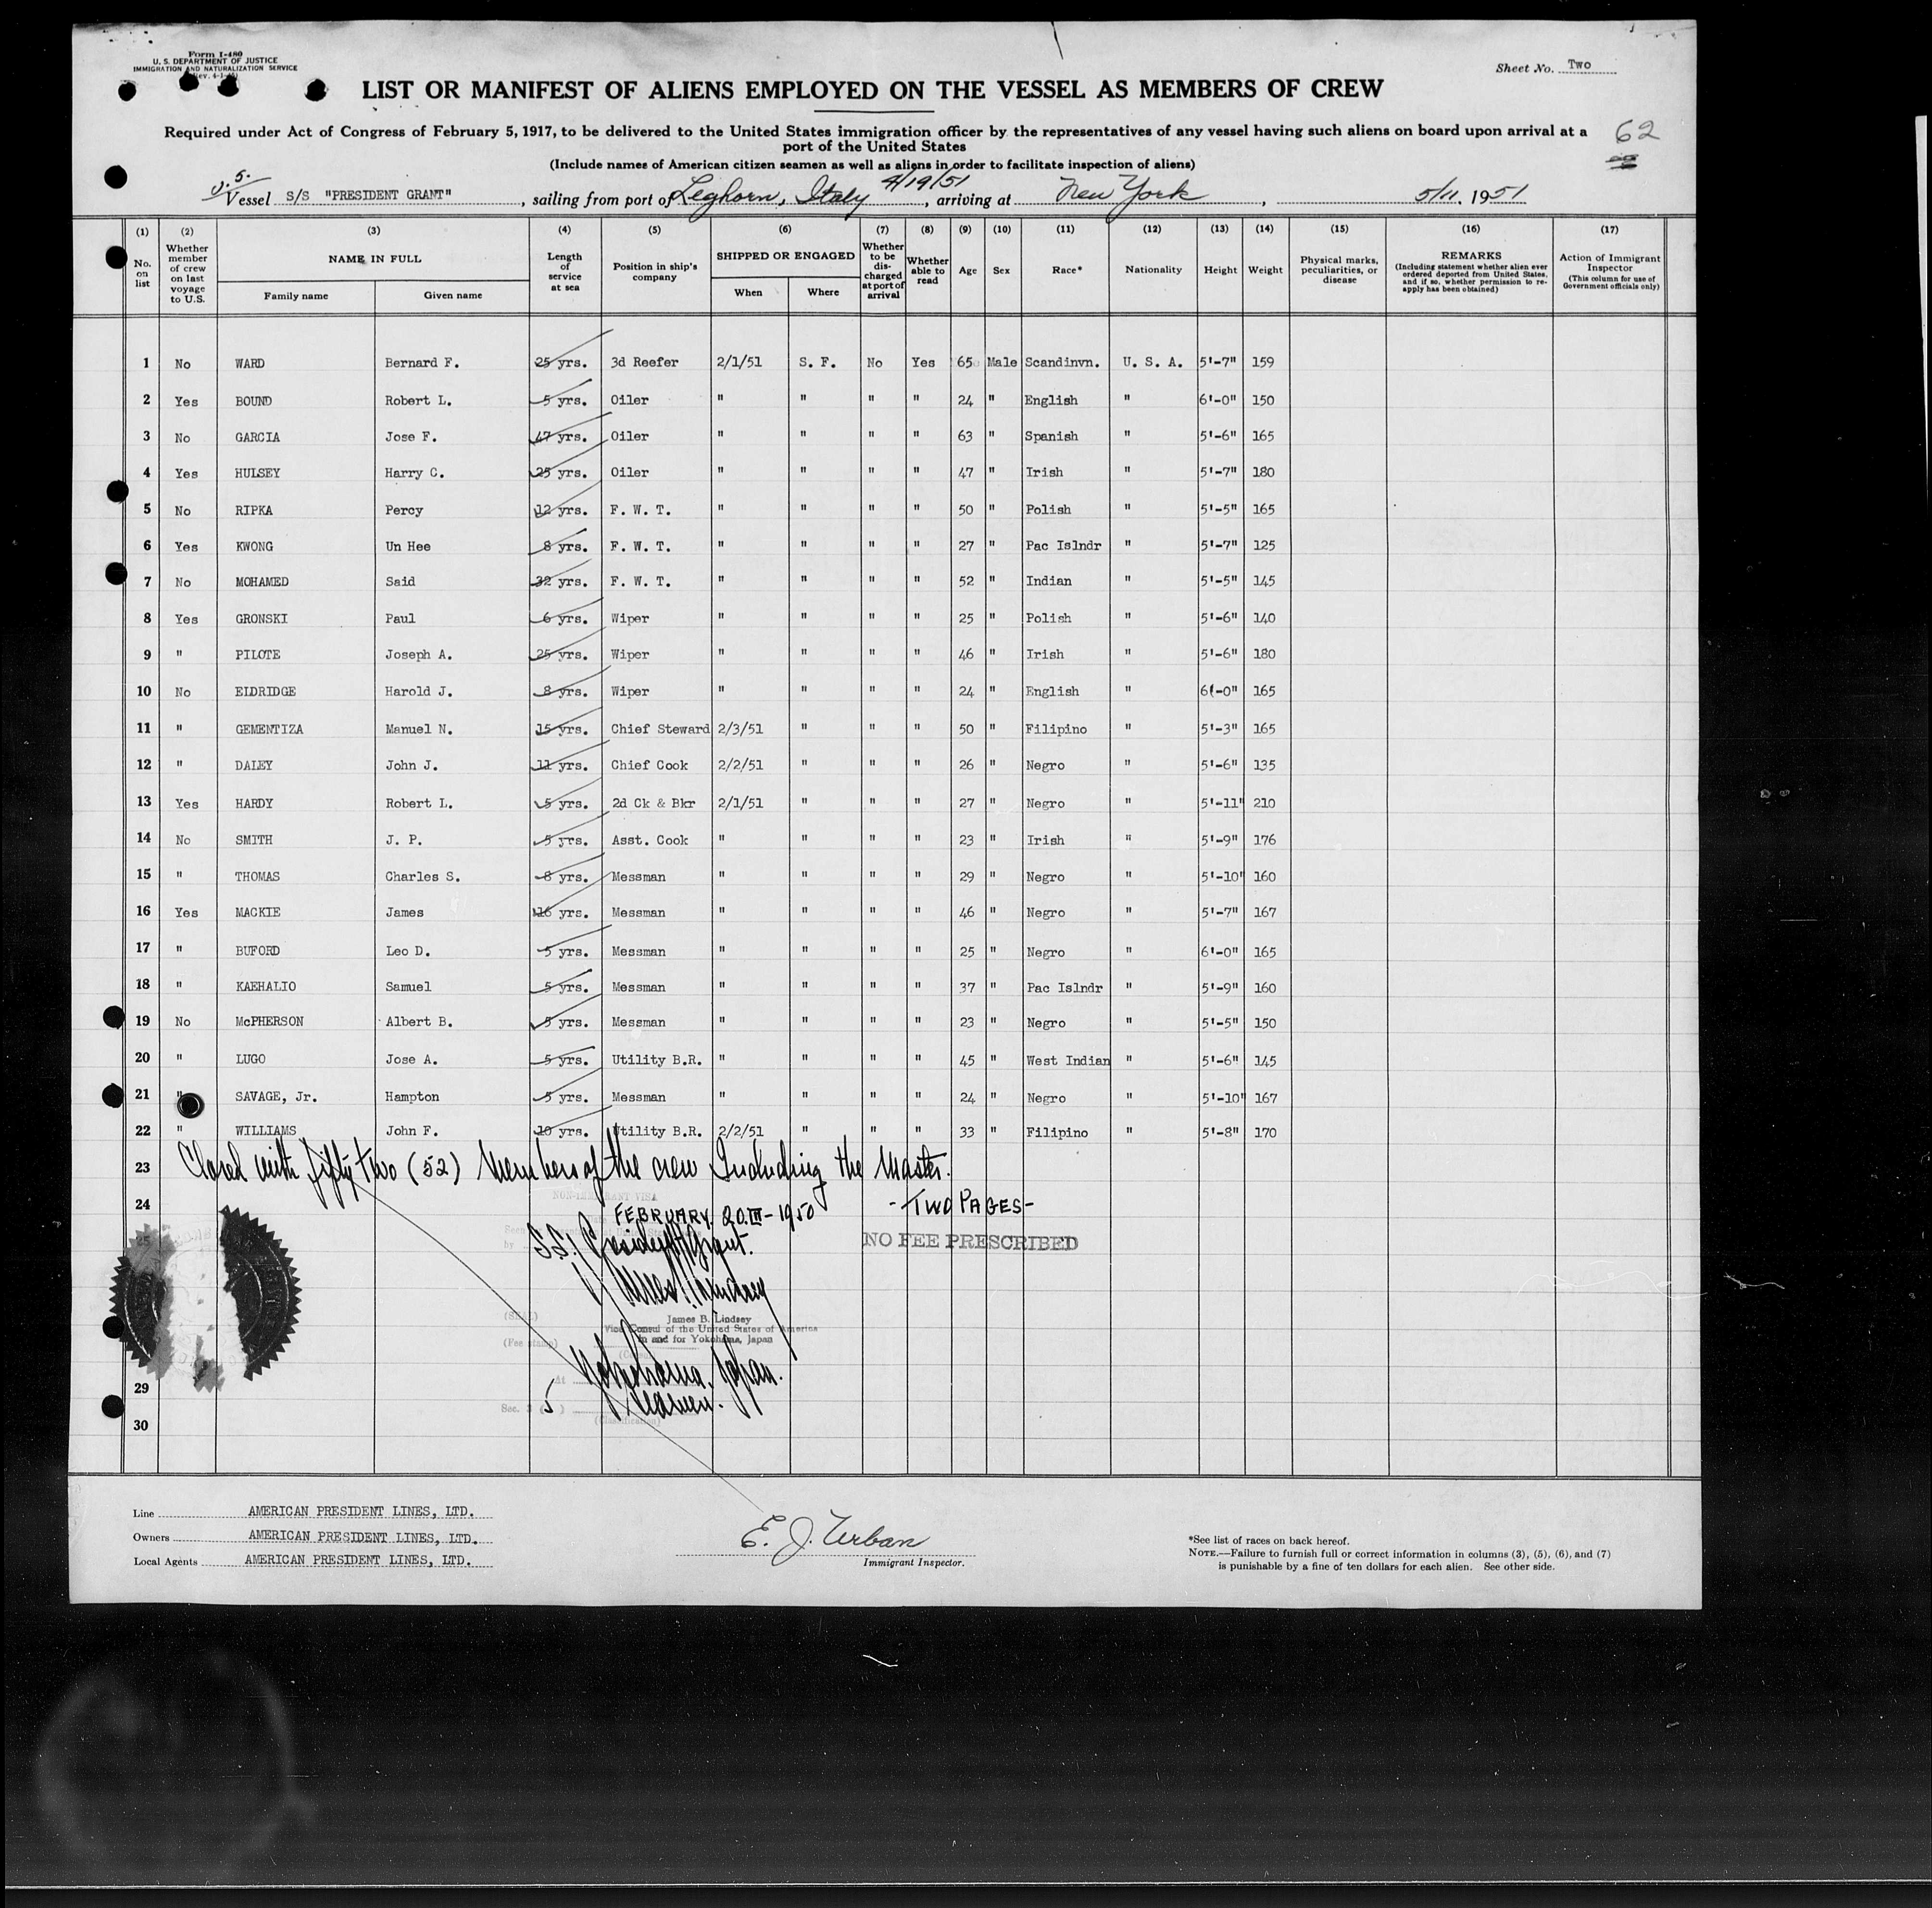 Form I-480
U. S. DEPARTMENT OF JUSTICE
IMMIGRATION AND NATURALIZATION SERVICE
Sheet No. Two
LIST OR MANIFEST OF ALIENS EMPLOYED ON THE VESSEL AS MEMBERS OF CREW
Required under Act of Congress of February 5, 1917, to be delivered to the United States immigration officer by the representatives of any vessel having such aliens on board upon arrival at a
port of the United States
62
(Include names of American citizen seamen as well as aliens in order to facilitate inspection of aliens)
U.S.
4/19/51
Vessel S/S "PRESIDENT GRANT", sailing from port of Leghorn, Italy, arriving at New York, 5/11, 1951
(1) No. on list
(2) Whether member of crew on last voyage to U.S.
(3) NAME IN FULL Family name Given name
(4) Length of service at sea
(5) Position in ship's company
(6) SHIPPED OR ENGAGED When Where
(7) Whether to be discharged at port of arrival
(8) Whether able to read
(9) Age
(10) Sex
(11) Race*
(12) Nationality
(13) Height
(14) Weight
(15) Physical marks, peculiarities, or disease
(16) REMARKS (Including statement whether alien ever ordered deported from United States, and if so, whether permission to re-apply has been obtained)
(17) Action of Immigrant Inspector (This column for use of Government officials only)
1 No WARD Bernard F. 25 yrs. 3d Reefer 2/1/51 S. F. No Yes 65 Male Scandinvn. U. S. A. 5'-7" 159
2 Yes BOUND Robert L. 5 yrs. Oiler " " " " 24 " English " 6'-0" 150
3 No GARCIA Jose F. 47 yrs. Oiler " " " " 63 " Spanish " 5'-6" 165
4 Yes HULSEY Harry C. 25 yrs. Oiler " " " " 47 " Irish " 5'-7" 180
5 No RIPKA Percy 12 yrs. F. W. T. " " " " 50 " Polish " 5'-5" 165
6 Yes KWONG Un Hee 8 yrs. F. W. T. " " " " 27 " Pac Islndr " 5'-7" 125
7 No MOHAMED Said 32 yrs. F. W. T. " " " " 52 " Indian " 5'-5" 145
8 Yes GRONSKI Paul 6 yrs. Wiper " " " " 25 " Polish " 5'-6" 140
9 " PILOTE Joseph A. 25 yrs. Wiper " " " " 46 " Irish " 5'-6" 180
10 No ELDRIDGE Harold J. 8 yrs. Wiper " " " " 24 " English " 6(-0" 165
11 " GEMENTIZA Manuel N. 15 yrs. Chief Steward 2/3/51 " " " 50 " Filipino " 5'-3" 165
12 " DALEY John J. 11 yrs. Chief Cook 2/2/51 " " " 26 " Negro " 5'-6" 135
13 Yes HARDY Robert L. 5 yrs. 2d Ck & Bkr 2/1/51 " " " 27 " Negro " 5'-11" 210
14 No SMITH J. P. 5 yrs. Asst. Cook " " " " 23 " Irish " 5'-9" 176
15 " THOMAS Charles S. 8 yrs. Messman " " " " 29 " Negro " 5'-10" 160
16 Yes MACKIE James 16 yrs. Messman " " " " 46 " Negro " 5'-7" 167
17 " BUFORD Leo D. 5 yrs. Messman " " " " 25 " Negro " 6'-0" 165
18 " KAEHALIO Samuel 5 yrs. Messman " " " " 37 " Pac Islndr " 5'-9" 160
19 No McPHERSON Albert B. 5 yrs. Messman " " " " 23 " Negro " 5'-5" 150
20 " LUGO Jose A. 5 yrs. Utility B.R. " " " " 45 " West Indian " 5'-6" 145
21 " SAVAGE, Jr. Hampton 5 yrs. Messman " " " " 24 " Negro " 5'-10" 167
22 " WILLIAMS John F. 10 yrs. Utility B.R. 2/2/51 " " " 33 " Filipino " 5'-8" 170
23 Closed with fifty two (52) members of the crew Including the Master.
24 - TWO PAGES -
NON-IMMIGRANT VISA
FEBRUARY 20 - 1950
25 S.S. President Grant. NO FEE PRESCRIBED
(SEAL) James B. Lindsey
Vice Consul of the United States of America
(Fee stamp) in and for Yokohama, Japan
At Yokohama, Japan.
29
Sec. 3 (5) Seamen.
(Classification)
30
Line AMERICAN PRESIDENT LINES, LTD.
Owners AMERICAN PRESIDENT LINES, LTD.
Local Agents AMERICAN PRESIDENT LINES, LTD.
E. J. Urban
Immigrant Inspector.
*See list of races on back hereof.
NOTE.—Failure to furnish full or correct information in columns (3), (5), (6), and (7)
is punishable by a fine of ten dollars for each alien. See other side.